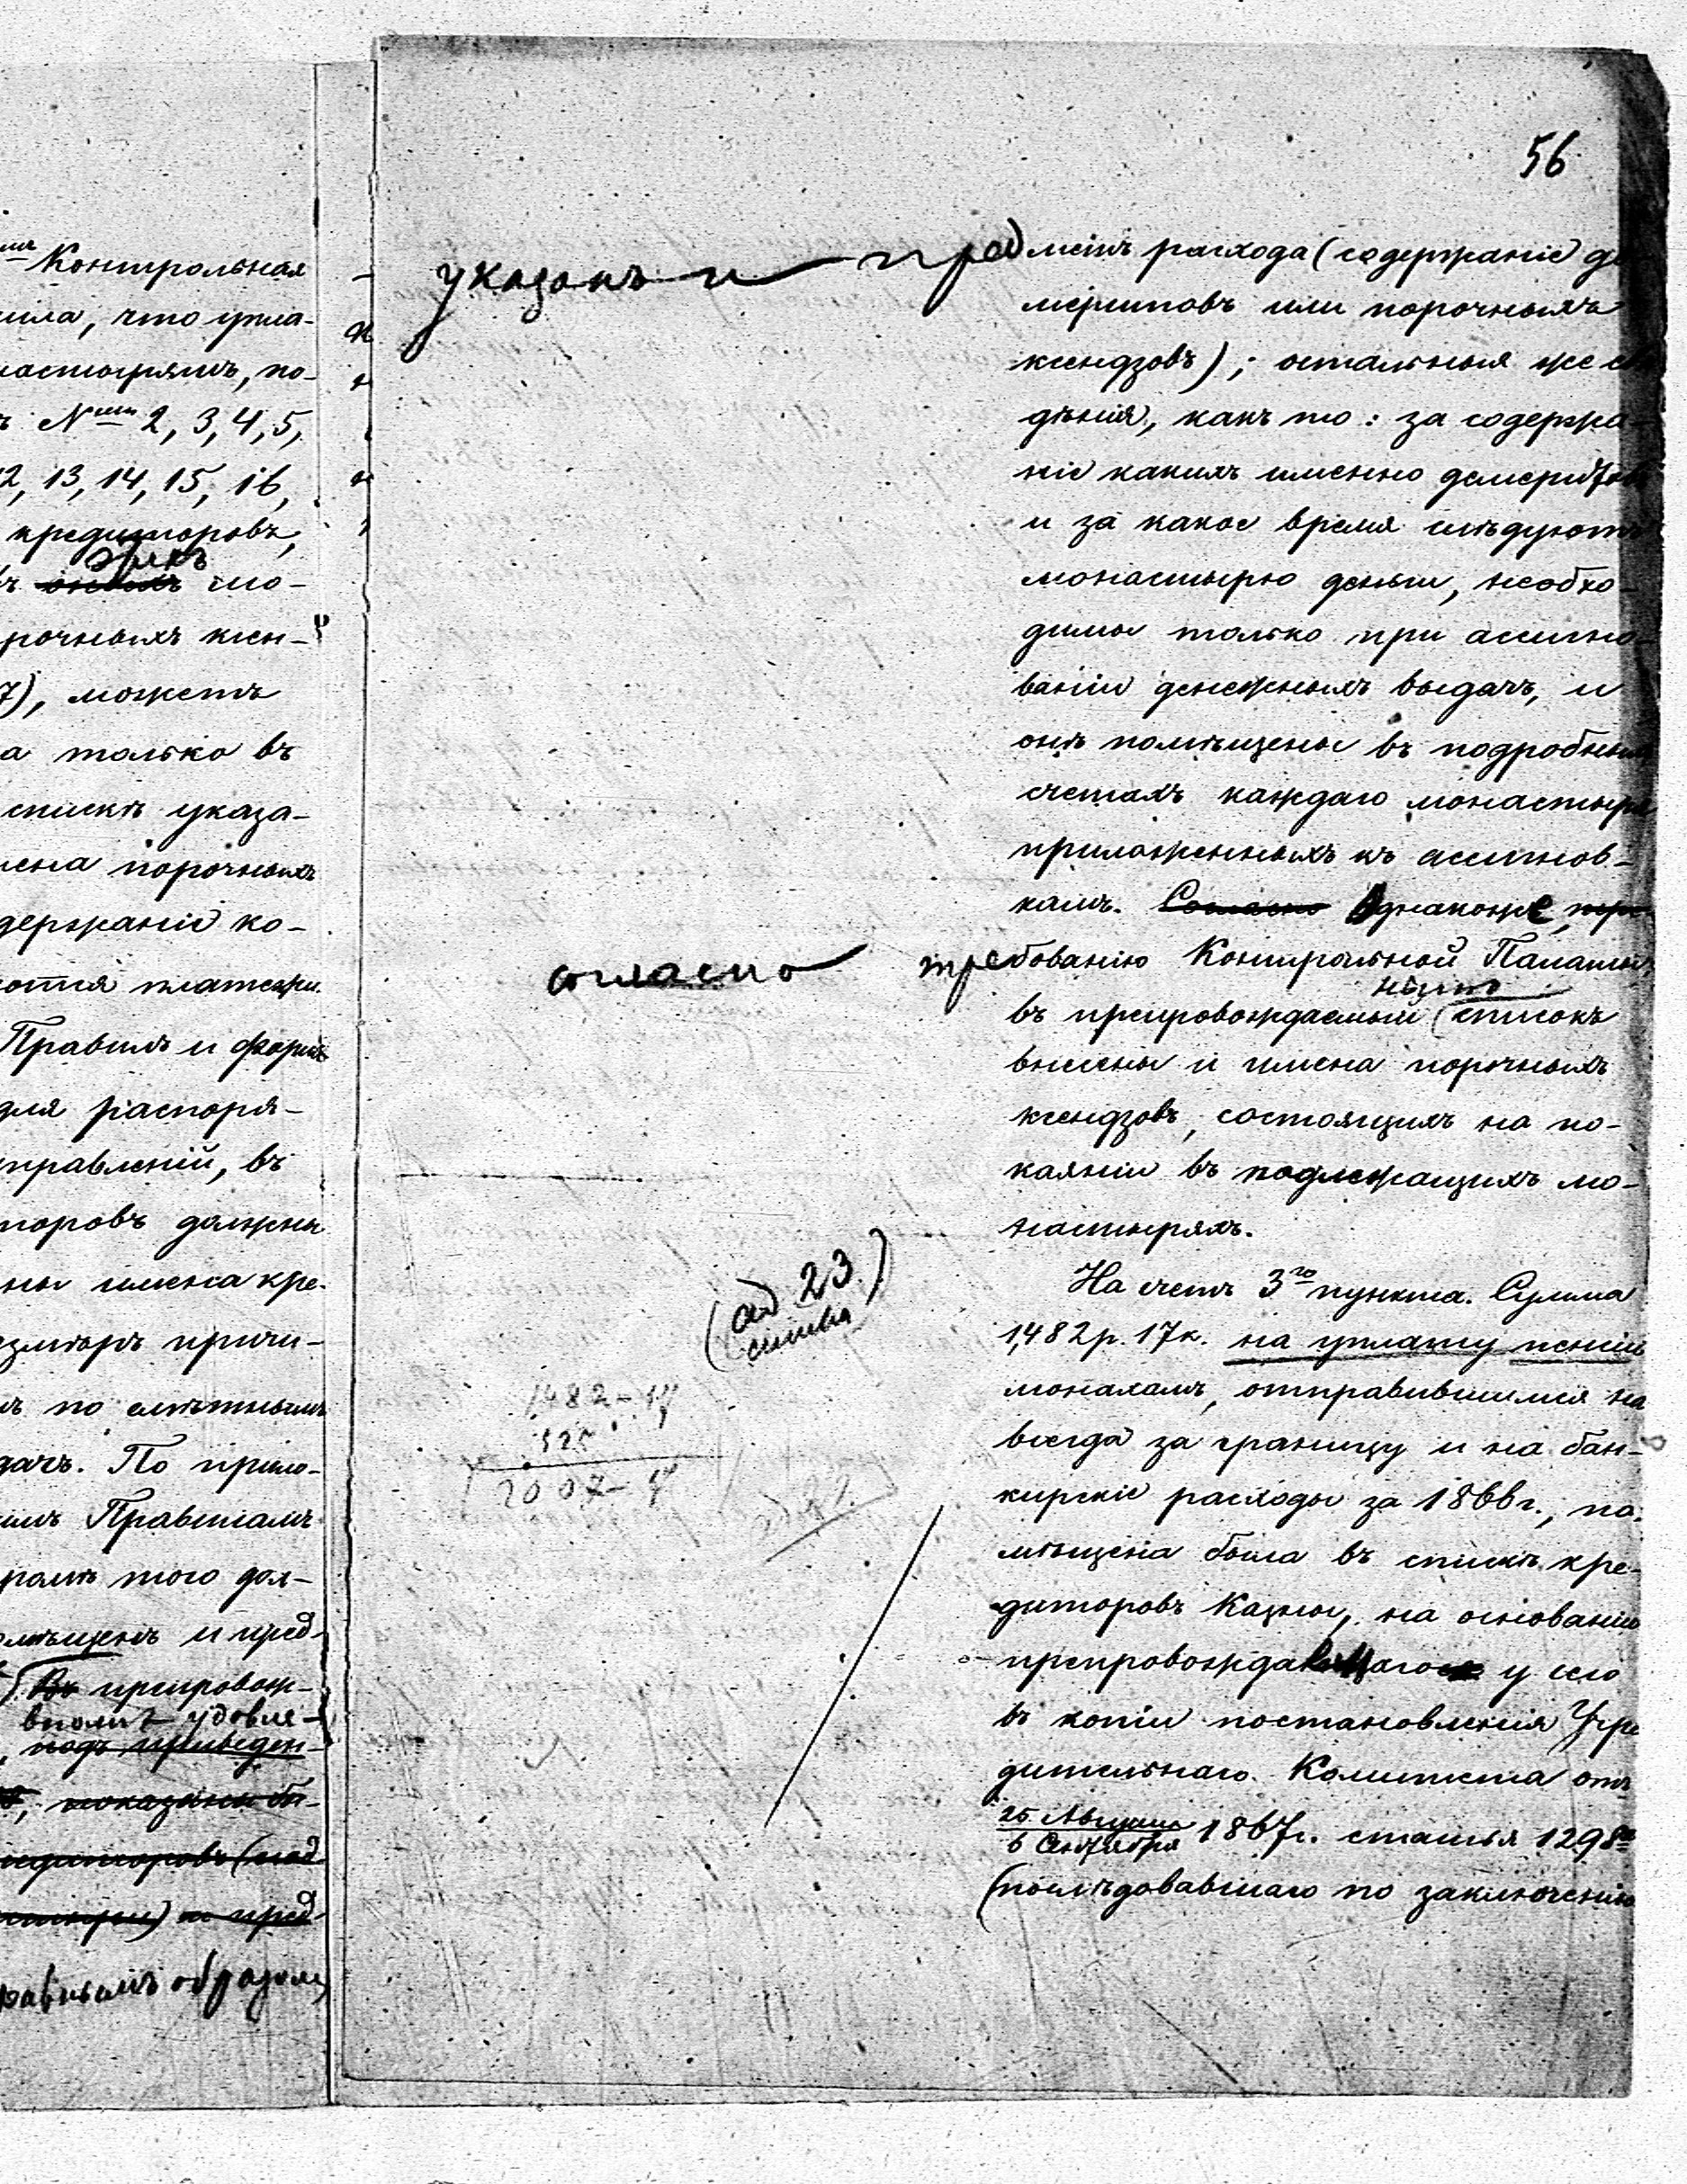 ия Контрольная
что упла-
настырямъ, по-
№ми 2, 3, 4, 5,
12, 13, 14, 15, 16,
кредиторовъ,
этихъ
мо-
рочныхъ ксен-
7), можетъ
а только въ
спискѣ указа-
мена порочныхъ
держаніе ко-
Правилъ и формъ
для распоря-
правленій, въ
торовъ должны
ны имена кре-
змѣръ причи-
по смѣтнымъ
дачъ. По прило-
Правиламъ
ромѣ того дол-
омѣщенъ и пред-
Въ препровож-
вполнѣ удовле-
подъ приведен-
показаны
едиторовъ
и пред-
равнымъ образомъ
56
указанъ и пред метъ расхода (содержаніе де
меритовъ или порочныхъ
ксендзовъ); остальныя же свѣ
дѣнія, какъ то: за содержа-
ніе какихъ именно демеритовъ
и за какое время слѣдуютъ
монастырю деньги, необхо-
димы только при ассигно-
ваніи денежныхъ выдачъ, и
онѣ помѣщены въ подробныхъ
счетахъ каждаго монастыря
приложенныхъ къ ассигнов-
камъ. Согласно Однакоже,
согласно требованію Контрольной Палаты,
въ препровождаемый списокъ
внесены и имена порочныхъ
ксендзовъ, состоящихъ на по-
каяніи въ подлежащихъ мо-
настыряхъ.
(ad 23)
На счетъ 3го пункта. Сумма
1,482 р. 17 к. на уплату пенсіи
монахамъ, отправившимся на
1482 - 17
525
2007 - 17
всегда за границу и на бан-
кирскіе расходы за 1866 г., по-
мѣщена была въ спискѣ кре-
диторовъ Казны, на основаніи
препровождающагося у сего
въ копіи постановленія Учре
дительнаго Комитета отъ
25 Августа
6 Сентября 1867 г. статья 1298
(послѣдовавшаго по заключенію